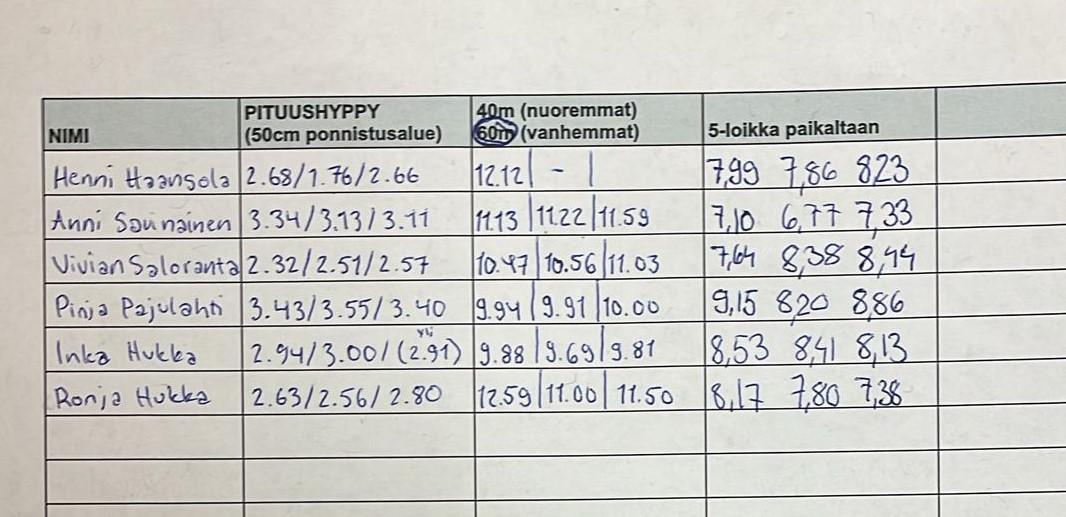 PITUUSHYPPY 40m (nuoremmat)
NIMI (50cm ponnistusalue) 60m (vanhemmat) 5-loikka paikaltaan
Henni Haansola 2.68/1.76/2.66 12.12| - | 7,99 7,86 8,23
Anni Saunainen 3.34/3.13/3.11 11.13|11.22|11.59 7,10 6,77 7,33
Vivian Saloranta 2.32/2.51/2.57 10.47|10.56|11.03 7,64 8,38 8,44
Pinja Pajulahti 3.43/3.55/3.40 9.94|9.91|10.00 9,15 8,20 8,86
yli
Inka Hukka 2.94/3.00/(2.91) 9.88|9.69|9.81 8,53 8,41 8,13
Ronja Hukka 2.63/2.56/2.80 12.59|11.00|11.50 8,17 7,80 7,38